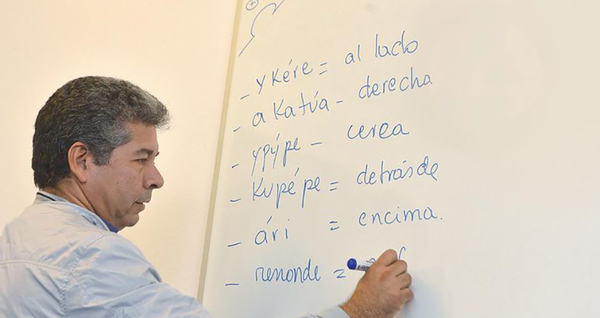 - ykére = al lado
- akatúa - derecha
- ypýpe - cerca
- kupépe = detrás de
- ári = encima.
- renonde =